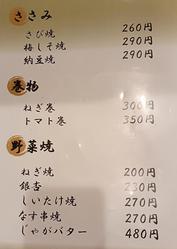 ささみ
さび焼 260円
梅しそ焼 290円
納豆焼 290円
巻物
ねぎ巻 300円
トマト巻 350円
野菜焼
ねぎ焼 200円
銀杏 230円
しいたけ焼 270円
なす串焼 270円
じゃがバター 480円